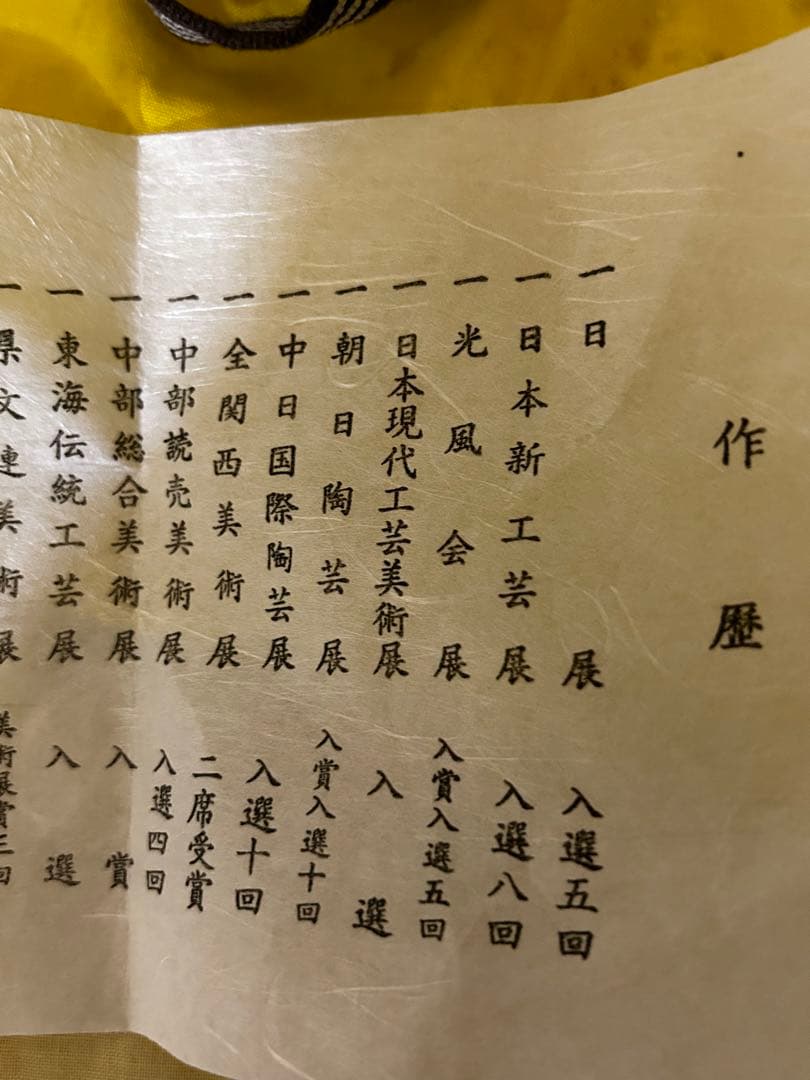 作歴
一 日展 入選五回
一 日本新工芸展 入選八回
一 光風会展 入賞入選五回
一 日本現代工芸美術展 入選
一 朝日陶芸展 入賞入選十回
一 中日国際陶芸展 入選十回
一 全関西美術展 二席受賞
一 中部読売美術展 入選四回
一 中部総合美術展 入賞
一 東海伝統工芸展 入選
一 県文連美術展 美術展賞三回